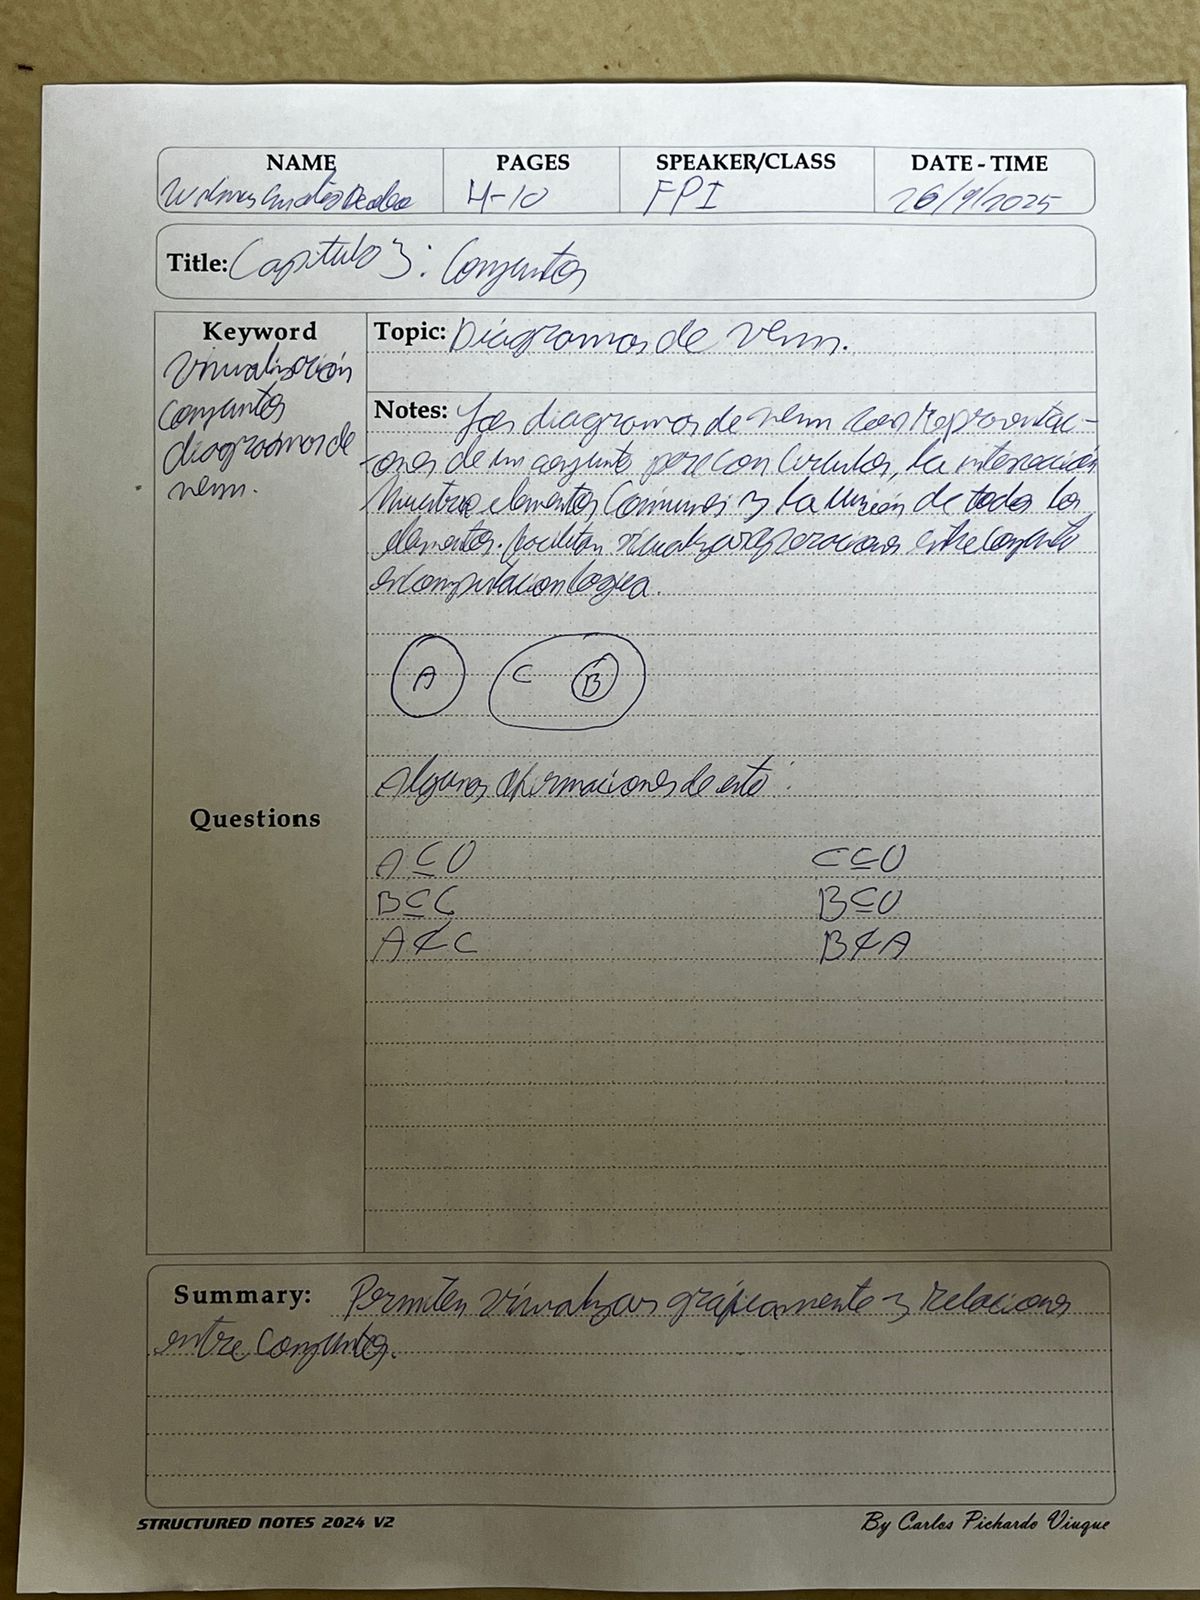 NAME PAGES SPEAKER/CLASS DATE - TIME
4-10 FPI 26/9/2025
Title: Capitulo 3: Conjuntos
Keyword
Visualización
conjuntos
diagramas de
venn.
Topic: Diagramas de venn.
Notes: Los diagramas de venn son representac-
iones de un conjunto, pero con circulos, la intersección
muestra elementos comunes y la unión de todos los
elementos. facilitan visualizar operaciones entre conjunto
en computacion logica.
A C B
Algunas afirmaciones de esto:
Questions
A ⊆ U C ⊆ U
B ⊆ C B ⊆ U
A ⊄ C B ⊄ A
Summary: Permiten visualizar gráficamente y relaciones
entre conjuntos.
STRUCTURED NOTES 2024 V2 By Carlos Pichardo Viuque